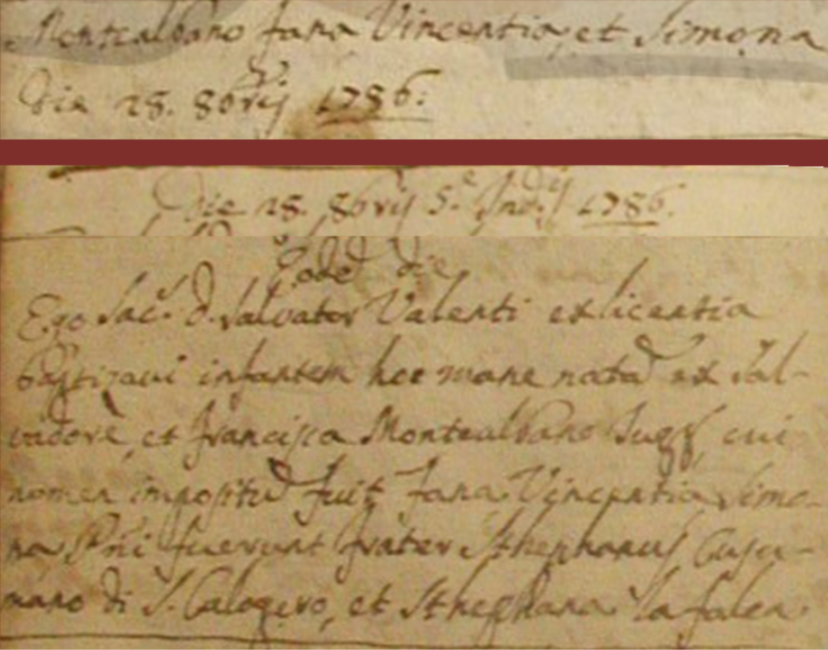 Montealbano Jana Vincentia, et Simona
Die 28. 8bris 1786:
Die 28. 8bris 5.e Ind.s 1786.
Eode die
Ego Sac.s D. Salvator Valenti ex licentia
baptizavi infantem hoc mane nata ex Sal-
vadore, et Francisca Montealbano Jug., cui
nomen impositu fuit Jana Vincentia Simo-
na P'ni fuerunt frater Sthephanus Cusu-
mano di S. Calogero, et Sthephana La falea